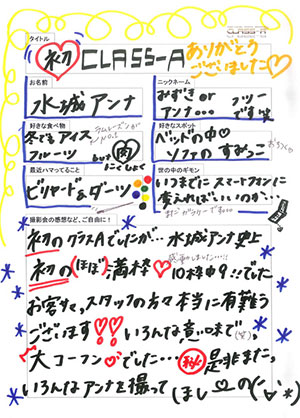 CLASS-A
タイトル
初 CLASS-A ありがとう
ございました♡
お名前
水城アンナ
ニックネーム
みずき or フツー
アンナ... です笑
好きな食べ物
冬でもアイス
フルーツ
but 肉
にくしょく
好きなスポット
ベッドの中♡
ソファのすみっこ
最近ハマってること
ビリヤード&ダーツ
世の中のギモン
いつまでに スマートフォンに
変えればいいのか...
まだガラケーです
撮影会の感想など、ご自由に!
初のクラスAでしたが... 水城アンナ史上
初の(ほぼ)満枠♡10枠中9!!でした
お客さま、スタッフの方々本当に有難う
ございます!!いろんな意味で(笑)
大コーフン♡でした... ㊙是非また、
いろんなアンナを撮って(ほしーの(*´∀`*)